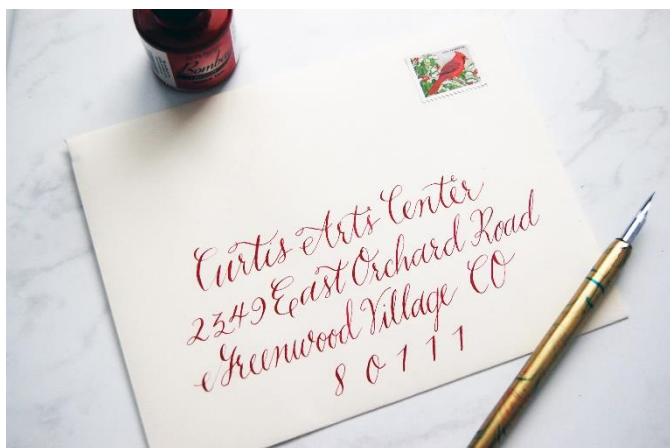 Bombay
Curtis Arts Center
2349 East Orchard Road
Greenwood Village CO
80111